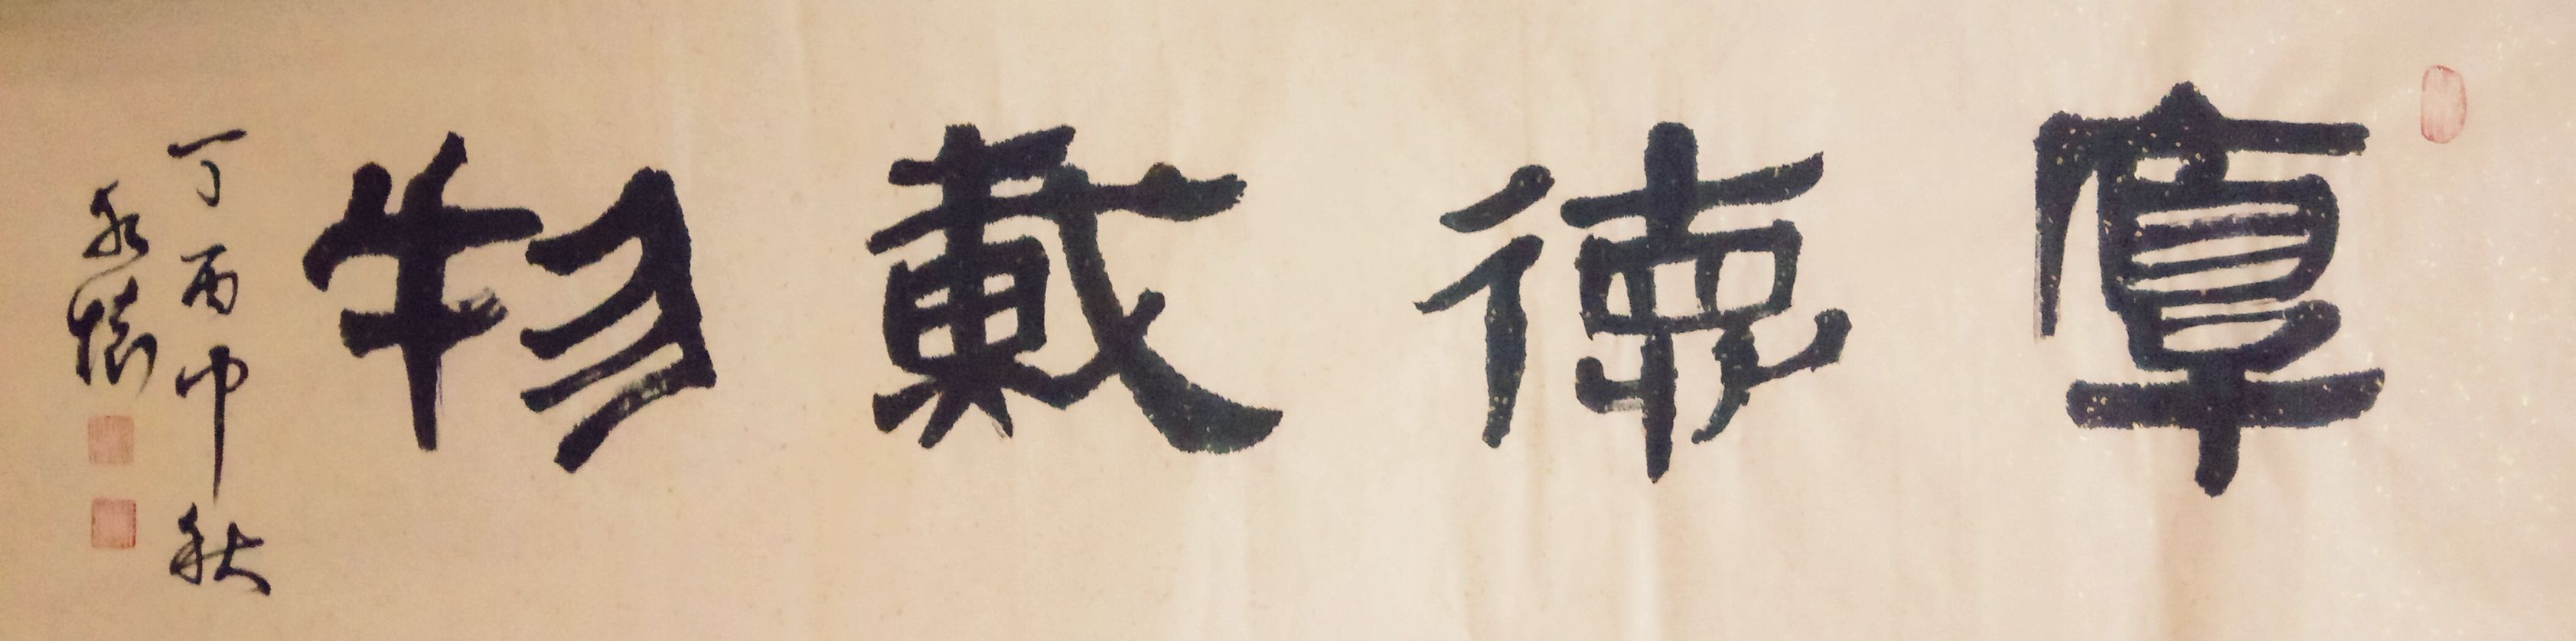 厚德載物
丁酉中秋
永懷